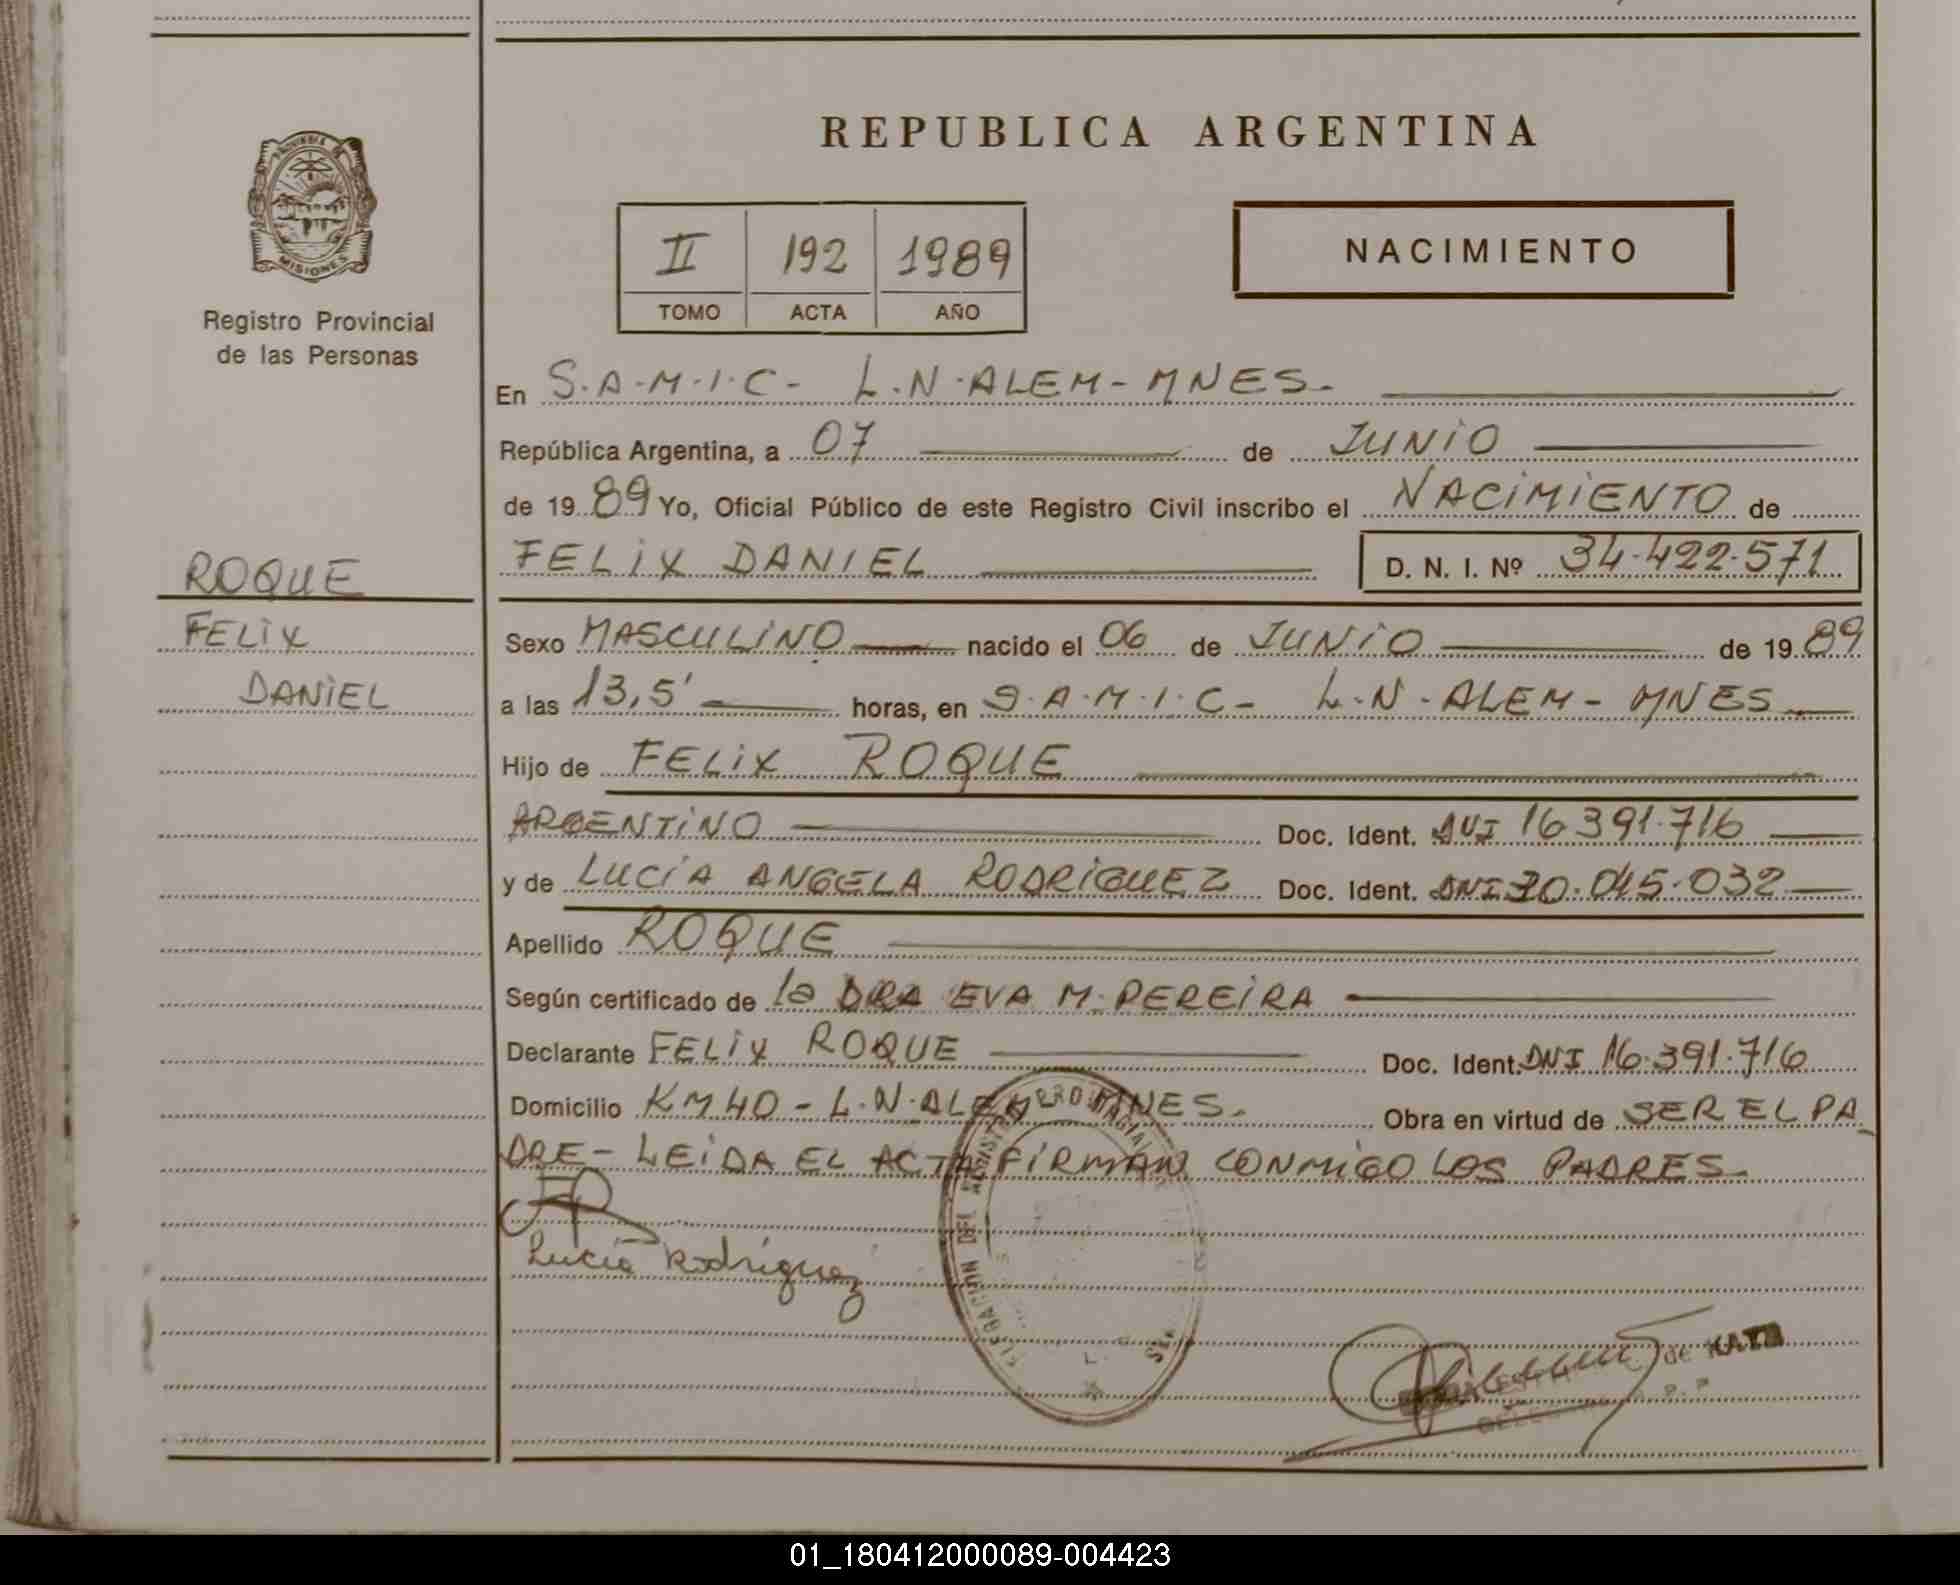 REPUBLICA ARGENTINA
PROVINCIA DE
MISIONES
Registro Provincial
de las Personas
II 192 1989
TOMO ACTA AÑO
NACIMIENTO
En S.A.M.I.C- L.N.ALEM-MNES.
República Argentina, a 07 de JUNIO
de 1989 Yo, Oficial Público de este Registro Civil inscribo el NACIMIENTO de
FELIX DANIEL D. N. I. Nº 34.422.571
ROQUE
FELIX
DANIEL
Sexo MASCULINO nacido el 06 de JUNIO de 1989
a las 13,5' horas, en S.A.M.I.C- L.N.ALEM-MNES
Hijo de FELIX ROQUE
ARGENTINO Doc. Ident. DNI 16391.716
y de LUCÍA ANGELA RODRIGUEZ Doc. Ident. DNI 20.045.032
Apellido ROQUE
Según certificado de la DRA EVA M. PEREIRA
Declarante FELIX ROQUE Doc. Ident. DNI 16.391.716
Domicilio KM40-L.N.ALEM MNES. Obra en virtud de SER EL PA_
DRE-LEIDA EL ACTA FIRMAN CONMIGO LOS PADRES
Lucía Rodríguez
DEL REGISTRO PROVINCIAL
de KATZ
01_180412000089-004423